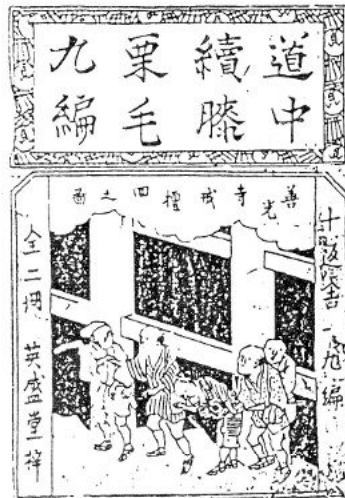 道中
續膝
栗毛
九編
善光寺戒檀回之圖
十返舎一九編
全二冊 英盛堂梓